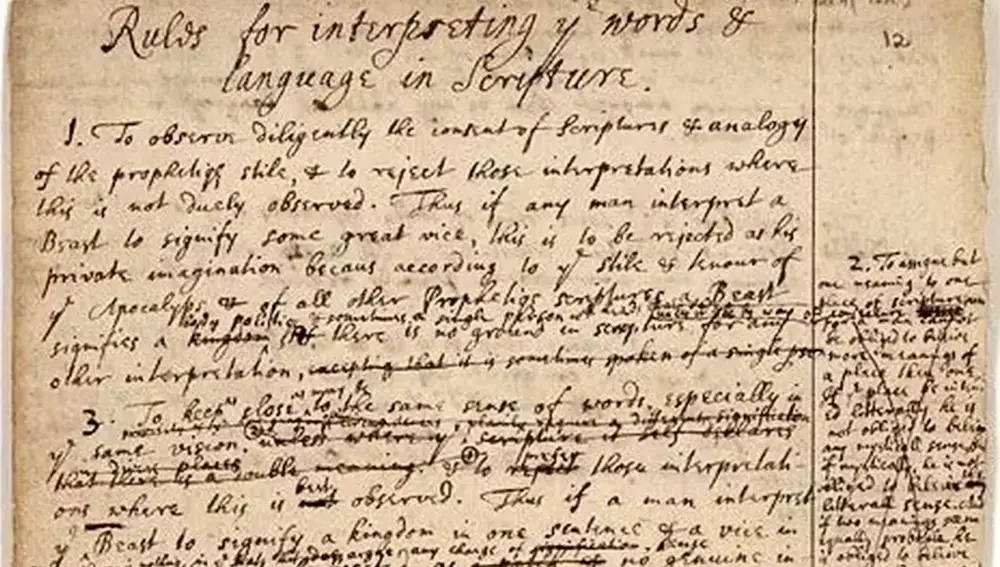 Rules for interpreting yᵉ words &
language in Scripture.
12
1. To observe diligently the consent of Scriptures & analogy
of the prophetiqꝫ stile, & to reject those interpretations where
this is not duely observed. Thus if any man interpret a
Beast to signify some great vice, this is to be rejected as his
private imagination becaus according to yᵉ stile & tenour of
yᵉ Apocalyps & of all other Prophetiqꝫ scriptures a Beast
body politic & sometimes a single person wᶜʰ
signifies a kingdom there is no ground in scripture for any
other interpretation, excepting that it is sometimes spoken of a single
3. To keep as close as may be to the same sense of words, especially in
yᵉ same vision. unless where yᵉ scripture it self declares
that there is a double meaning. & to prefer those interpretati-
ons where this is best observed. Thus if a man interpret
yᵉ Beast to signify a kingdom in one sentence & a vice in
2. To assigne but
one meaning to one
place of scripture
be obliged to beleive
more meanings of
a place then one
literally, he is
not obliged to beleive
any mysticall
if mystically, he is not
obliged to beleive
litterall sense.
if two meanings seem
equally probable he
is obliged to beleive